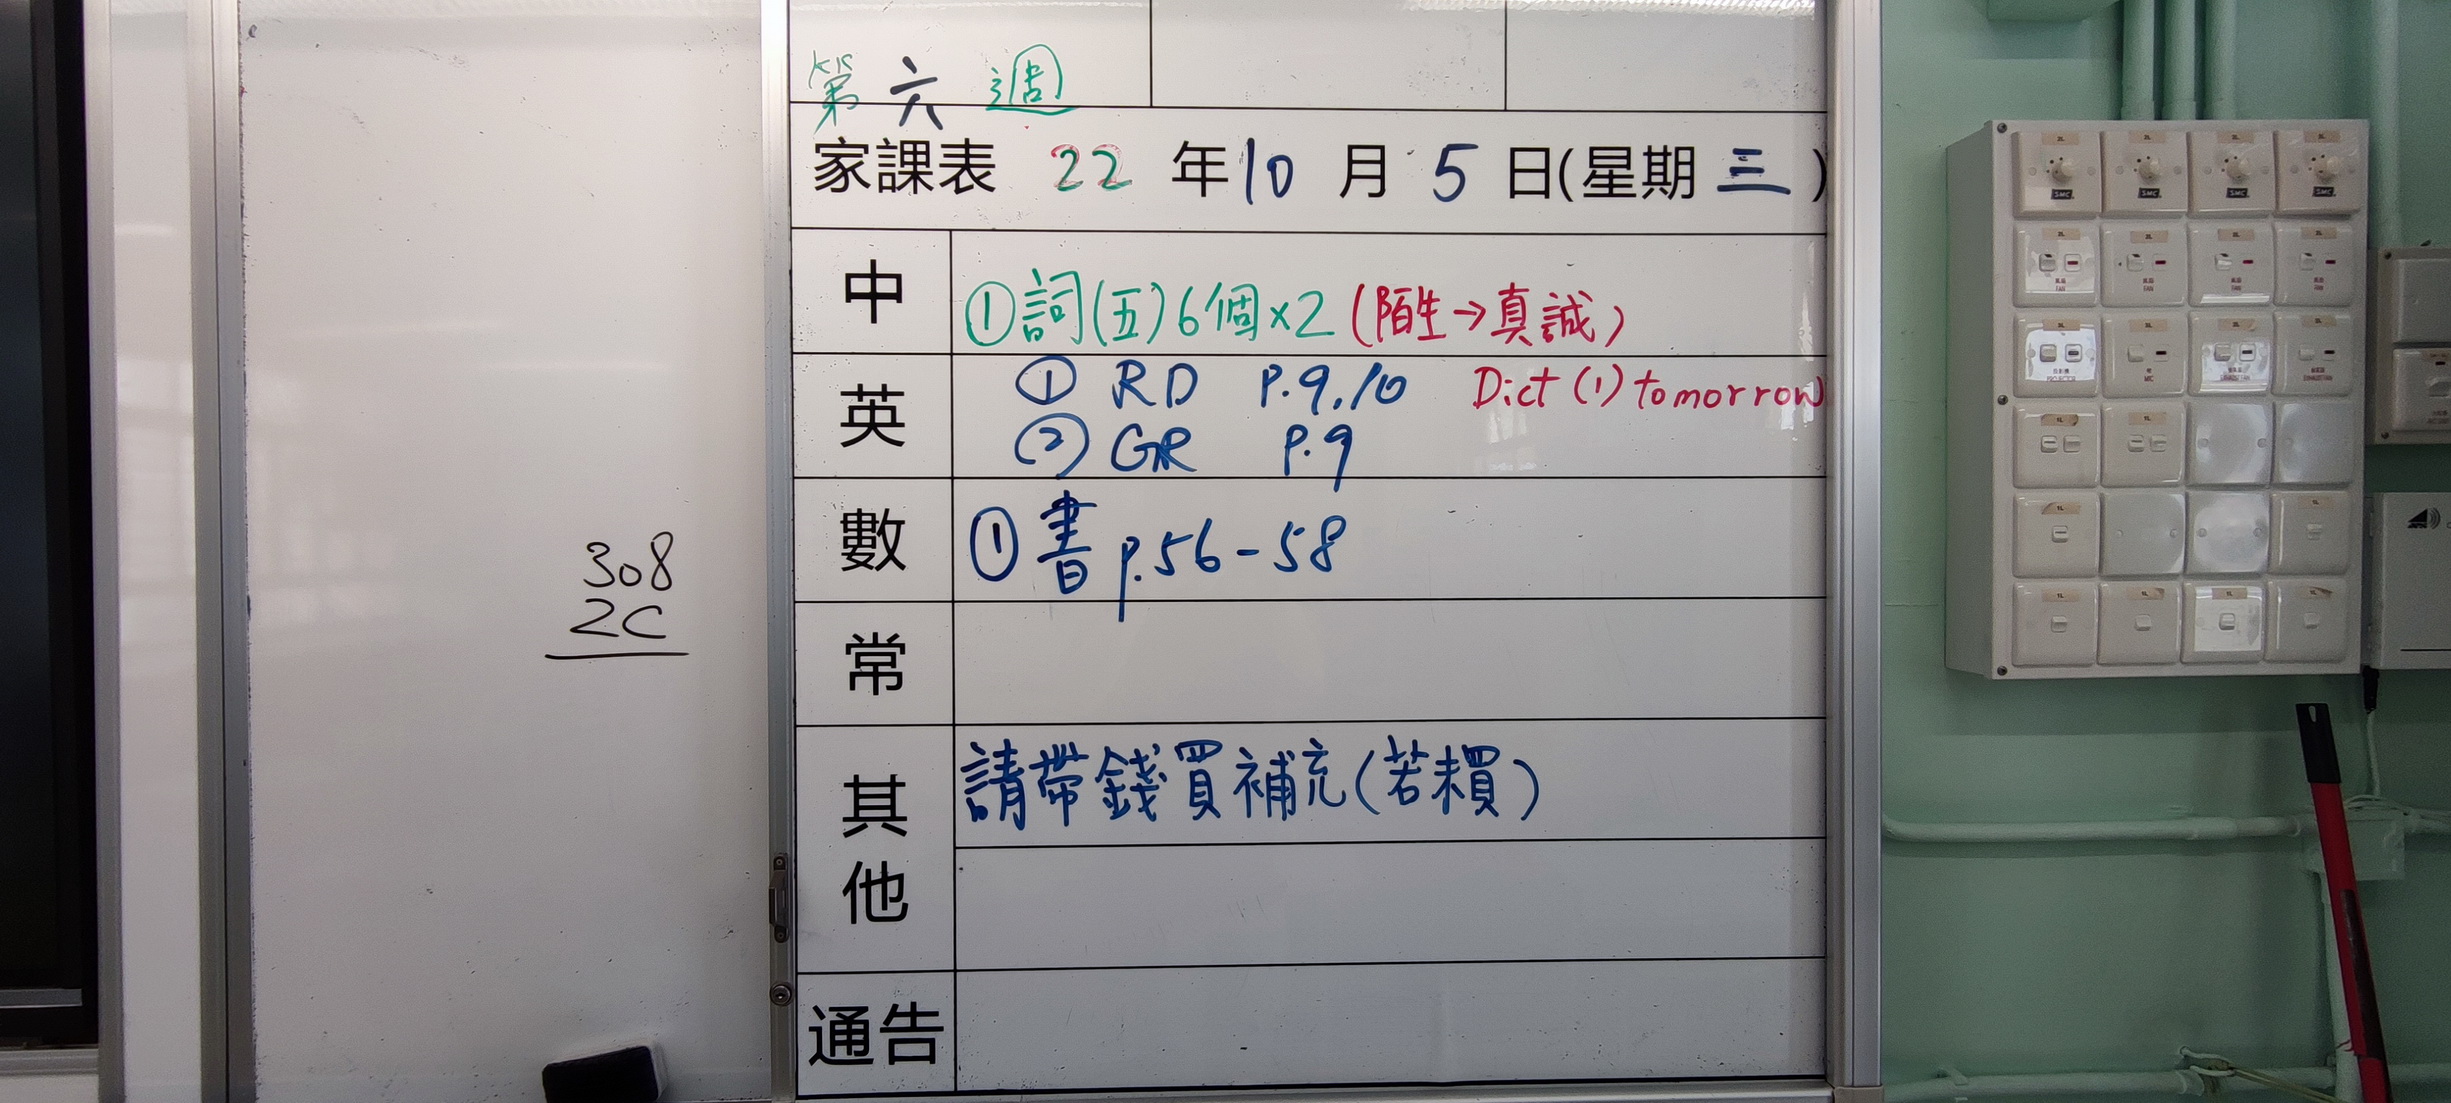 第六週
家課表 22 年 10 月 5 日(星期 三)
中 ①詞(五)6個×2 (陌生→真誠)
英 ① RD P.9,10 Dict (1) tomorrow
② GR P.9
數 ①書 p.56-58
常
其他 請帶錢買補充(若賴)
通告
308
2C